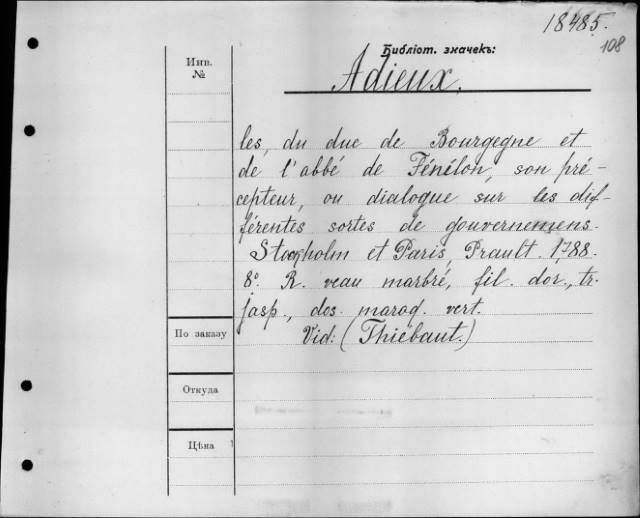 18485.
108
Библіот. значекъ:
Инв.
№
Adieux,
les, du duc de Bourgegne et
de l'abbé de Fénélon, son pré-
cepteur, ou dialogue sur les dif-
férentes sortes de gouvernemens.
Stockholm et Paris, Prault. 1788.
8º. R. veau marbré, fil. dor., tr.
jasp., dos maroq. vert.
Vid: (Thiébaut.)
По заказу
Откуда
Цѣна